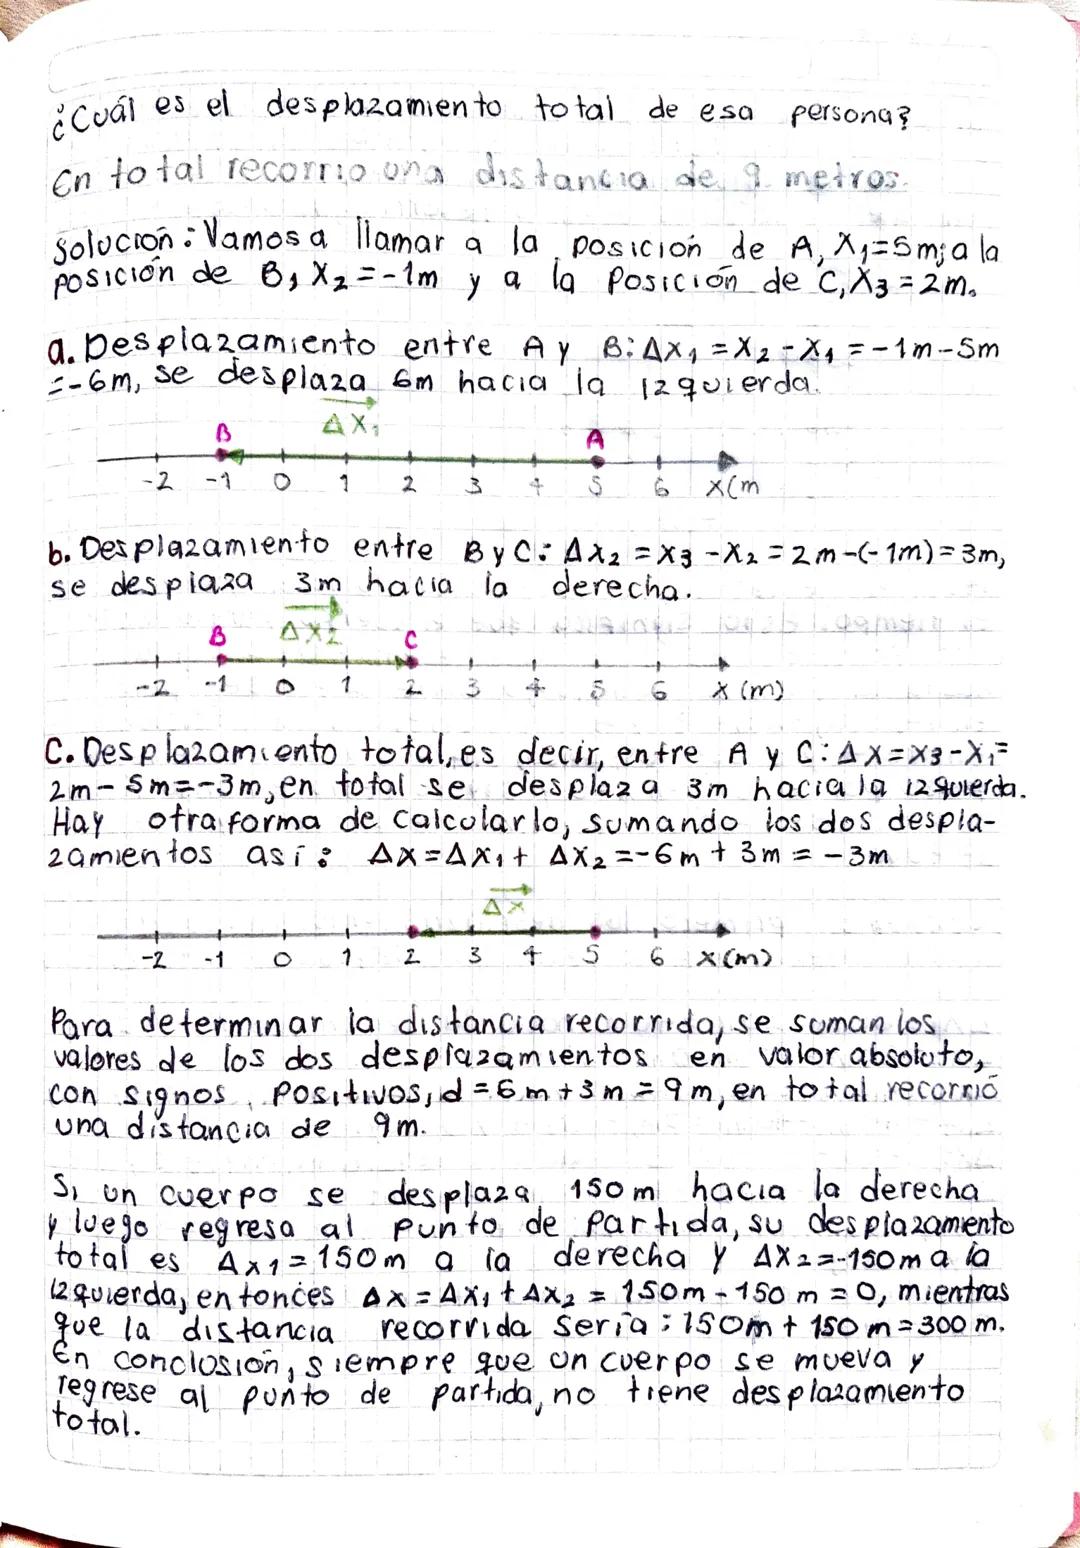 ¿Cuál es el desplazamiento total de esa persona?
En total recorrio una distancia de 9 metros.
Solución: Vamos a llamar a la posición de A, X₁=5m; a la
posición de B, X₂ = -1m y a la Posición de C, X₃ = 2m.
a. Desplazamiento entre A y B: ΔX₁ = X₂ - X₁ = -1m - 5m
= -6m, se desplaza 6m hacia la izquierda.
ΔX₁
B A
-2 -1 0 1 2 3 4 5 6 X(m
b. Desplazamiento entre B y C: ΔX₂ = X₃ - X₂ = 2m -(-1m) = 3m,
se desplaza 3m hacia la derecha.
B ΔX₂ C
-2 -1 0 1 2 3 4 5 6 X (m)
C. Desplazamiento total, es decir, entre A y C: ΔX = X₃ - X₁ =
2m - 5m = -3m, en total se desplaza 3m hacia la izquierda.
Hay otra forma de calcularlo, sumando los dos despla-
zamientos así: ΔX = ΔX₁ + ΔX₂ = -6m + 3m = -3m
ΔX
-2 -1 0 1 2 3 4 5 6 X(m)
Para determinar la distancia recorrida, se suman los
valores de los dos desplazamientos en valor absoluto,
con signos positivos, d = 6m + 3m = 9m, en total recorrió
una distancia de 9m.
Si un cuerpo se desplaza 150m hacia la derecha
y luego regresa al punto de partida, su desplazamento
total es ΔX1 = 150m a la derecha y ΔX2 = -150m a la
izquierda, entonces ΔX = ΔX₁ + ΔX₂ = 150m - 150m = 0, mientras
que la distancia recorrida seria: 150m + 150m = 300m.
En conclusión, siempre que un cuerpo se mueva y
regrese al punto de partida, no tiene desplazamiento
total.